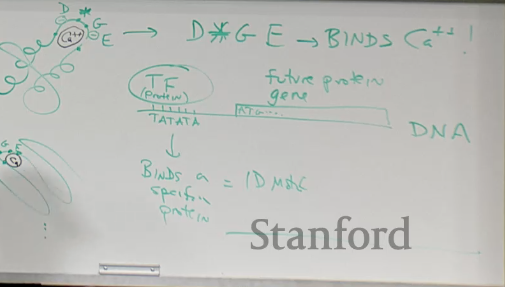 D * G E
Ca++
D * G E → BINDS Ca++ !
TF
(protein)
future protein
gene
ATG...
TATATA
DNA
BINDS a
specific
protein
= 1D Motif
G E
Ca
Stanford